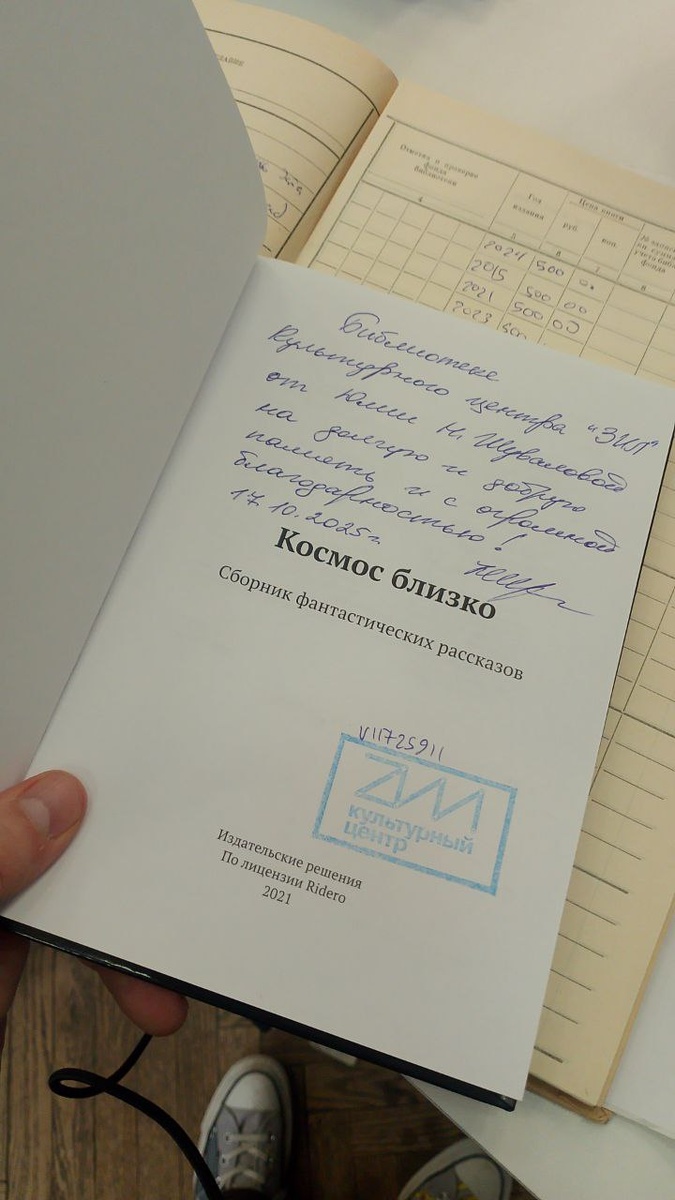 Отметка о проверке
фонда
библиотеки
Год
издания
Цена книги
руб.
коп.
4
5
6
7
8
2024 500 00
2015 500 00
2021 500 00
2023 500
Библиотеке
Культурного центра "ЗИЛ"
от Юлии Н. Шуваловой
на долгую и добрую
память и с огромной
благодарностью!
17.10.2025г.
Космос близко
Сборник фантастических рассказов
V11725911
ЗИЛ
культурный
центр
Издательские решения
По лицензии Ridero
2021